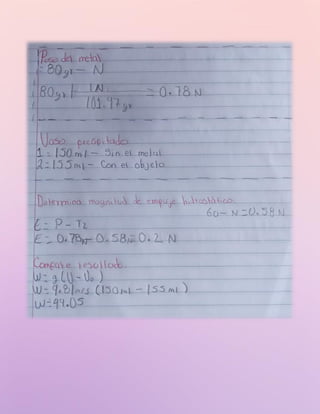 Peso del metal
= 80gr - N
80gr | 1N / 101.97gr = 0.78 N
Vaso precipitado
1 = 150 ml - Sin el metal
2 = 155 ml - Con el objeto
Determina magnitud de empuje hidrostático
60 - N = 0.58 N
E = P - T2
E = 0.78N - 0.58N = 0.2 N
Compare resultado
W = g (V - V0)
W = 9.81m/s (150ml - 155ml)
W = 49.05